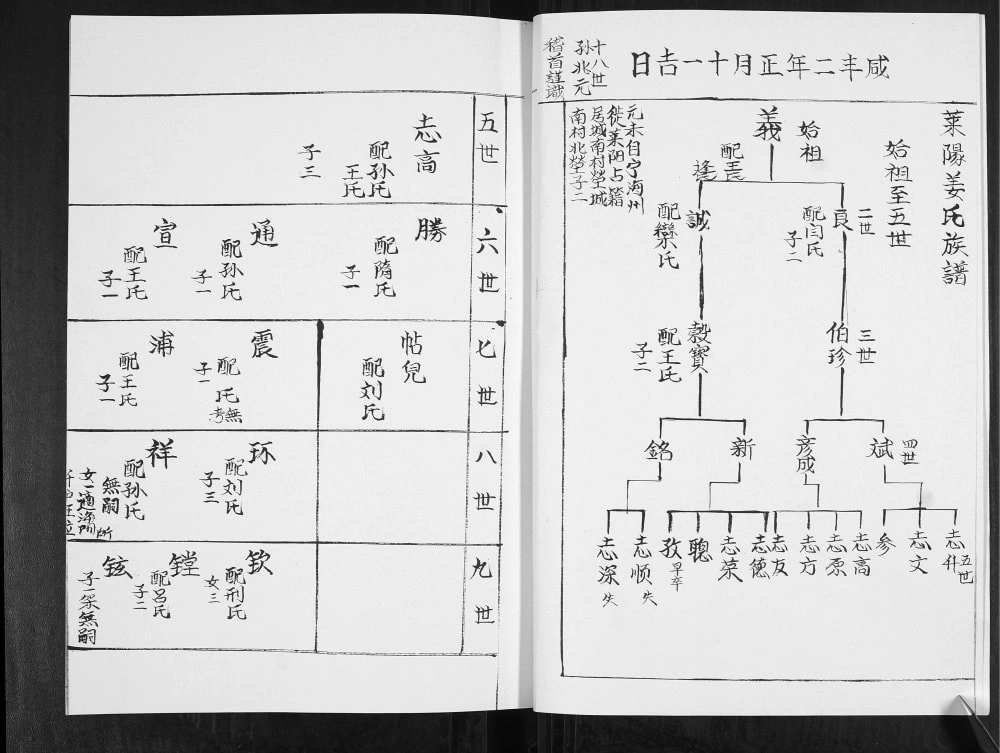 咸丰二年正月十一吉日
十八世
孙兆元
稽首謹識
萊陽姜氏族譜
始祖至五世
始祖
義
配王氏
逢
元末自宁海州
徙莱阳占籍
居城南村塋城
南村北塋子二
二世
良
配闫氏
子二
誠
配欒氏
三世
伯珍
穀寶
配王氏
子二
四世
斌
彦成
新
銘
五世
志升
志文
参
志高
志原
志方
志友
志德
志荣
聰
孜
早卒
志顺
失
志深
失
五世
志高
配孙氏
王氏
子三
六世
勝
配隋氏
子一
通
配孙氏
子一
宣
配王氏
子一
七世
帖兒
配刘氏
震
配 氏
無考
子一
浦
配王氏
子一
八世
环
配刘氏
子三
祥
配孙氏
無嗣
女一適
九世
钦
配刑氏
女三
鏜
配吕氏
子二
鉉
子一荣無嗣